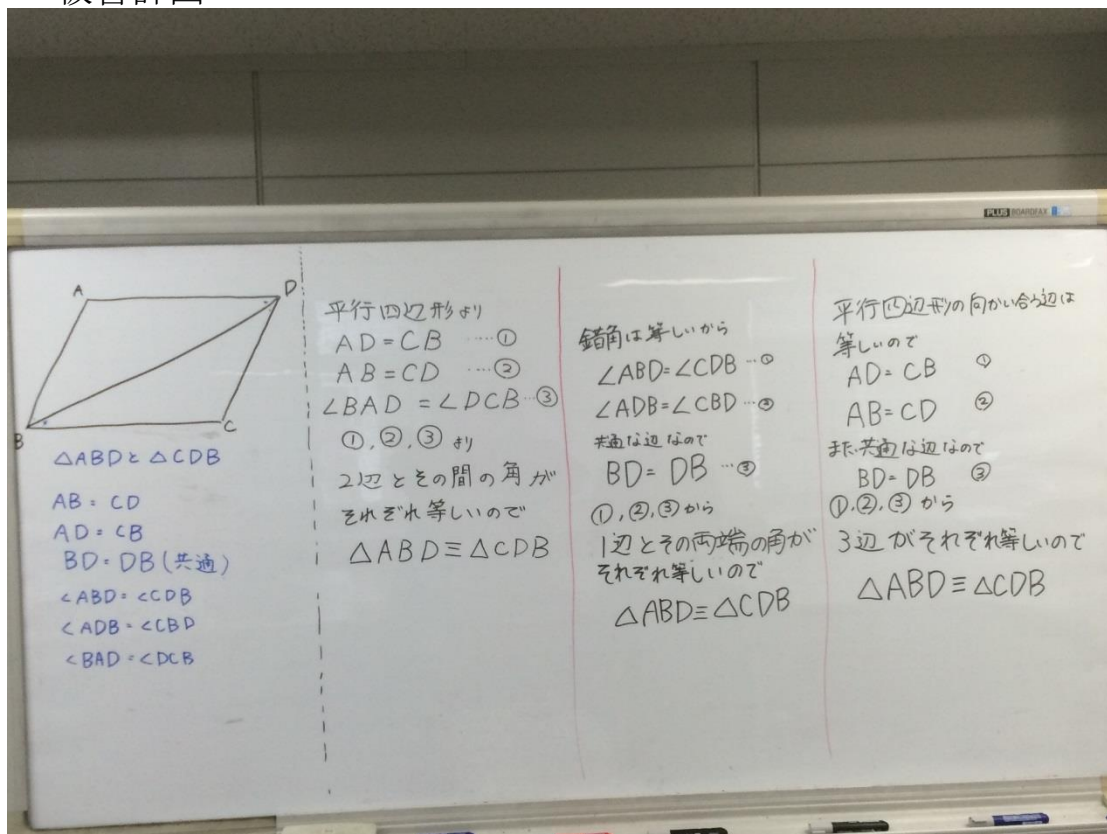 板書計画
PLUS BOARDFAX
A
D
B
C
△ABDと△CDB
AB = CD
AD = CB
BD = DB (共通)
∠ABD = ∠CDB
∠ADB = ∠CBD
∠BAD = ∠DCB
平行四辺形より
AD = CB ……①
AB = CD ……②
∠BAD = ∠DCB …③
①, ②, ③ より
2辺とその間の角が
それぞれ等しいので
△ABD≡△CDB
錯角は等しいから
∠ABD=∠CDB …①
∠ADB=∠CBD …②
共通な辺なので
BD = DB …③
①, ②, ③から
1辺とその両端の角が
それぞれ等しいので
△ABD≡△CDB
平行四辺形の向かい合う辺は
等しいので
AD = CB ①
AB = CD ②
また、共通な辺なので
BD = DB ③
①, ②, ③ から
3辺がそれぞれ等しいので
△ABD≡△CDB